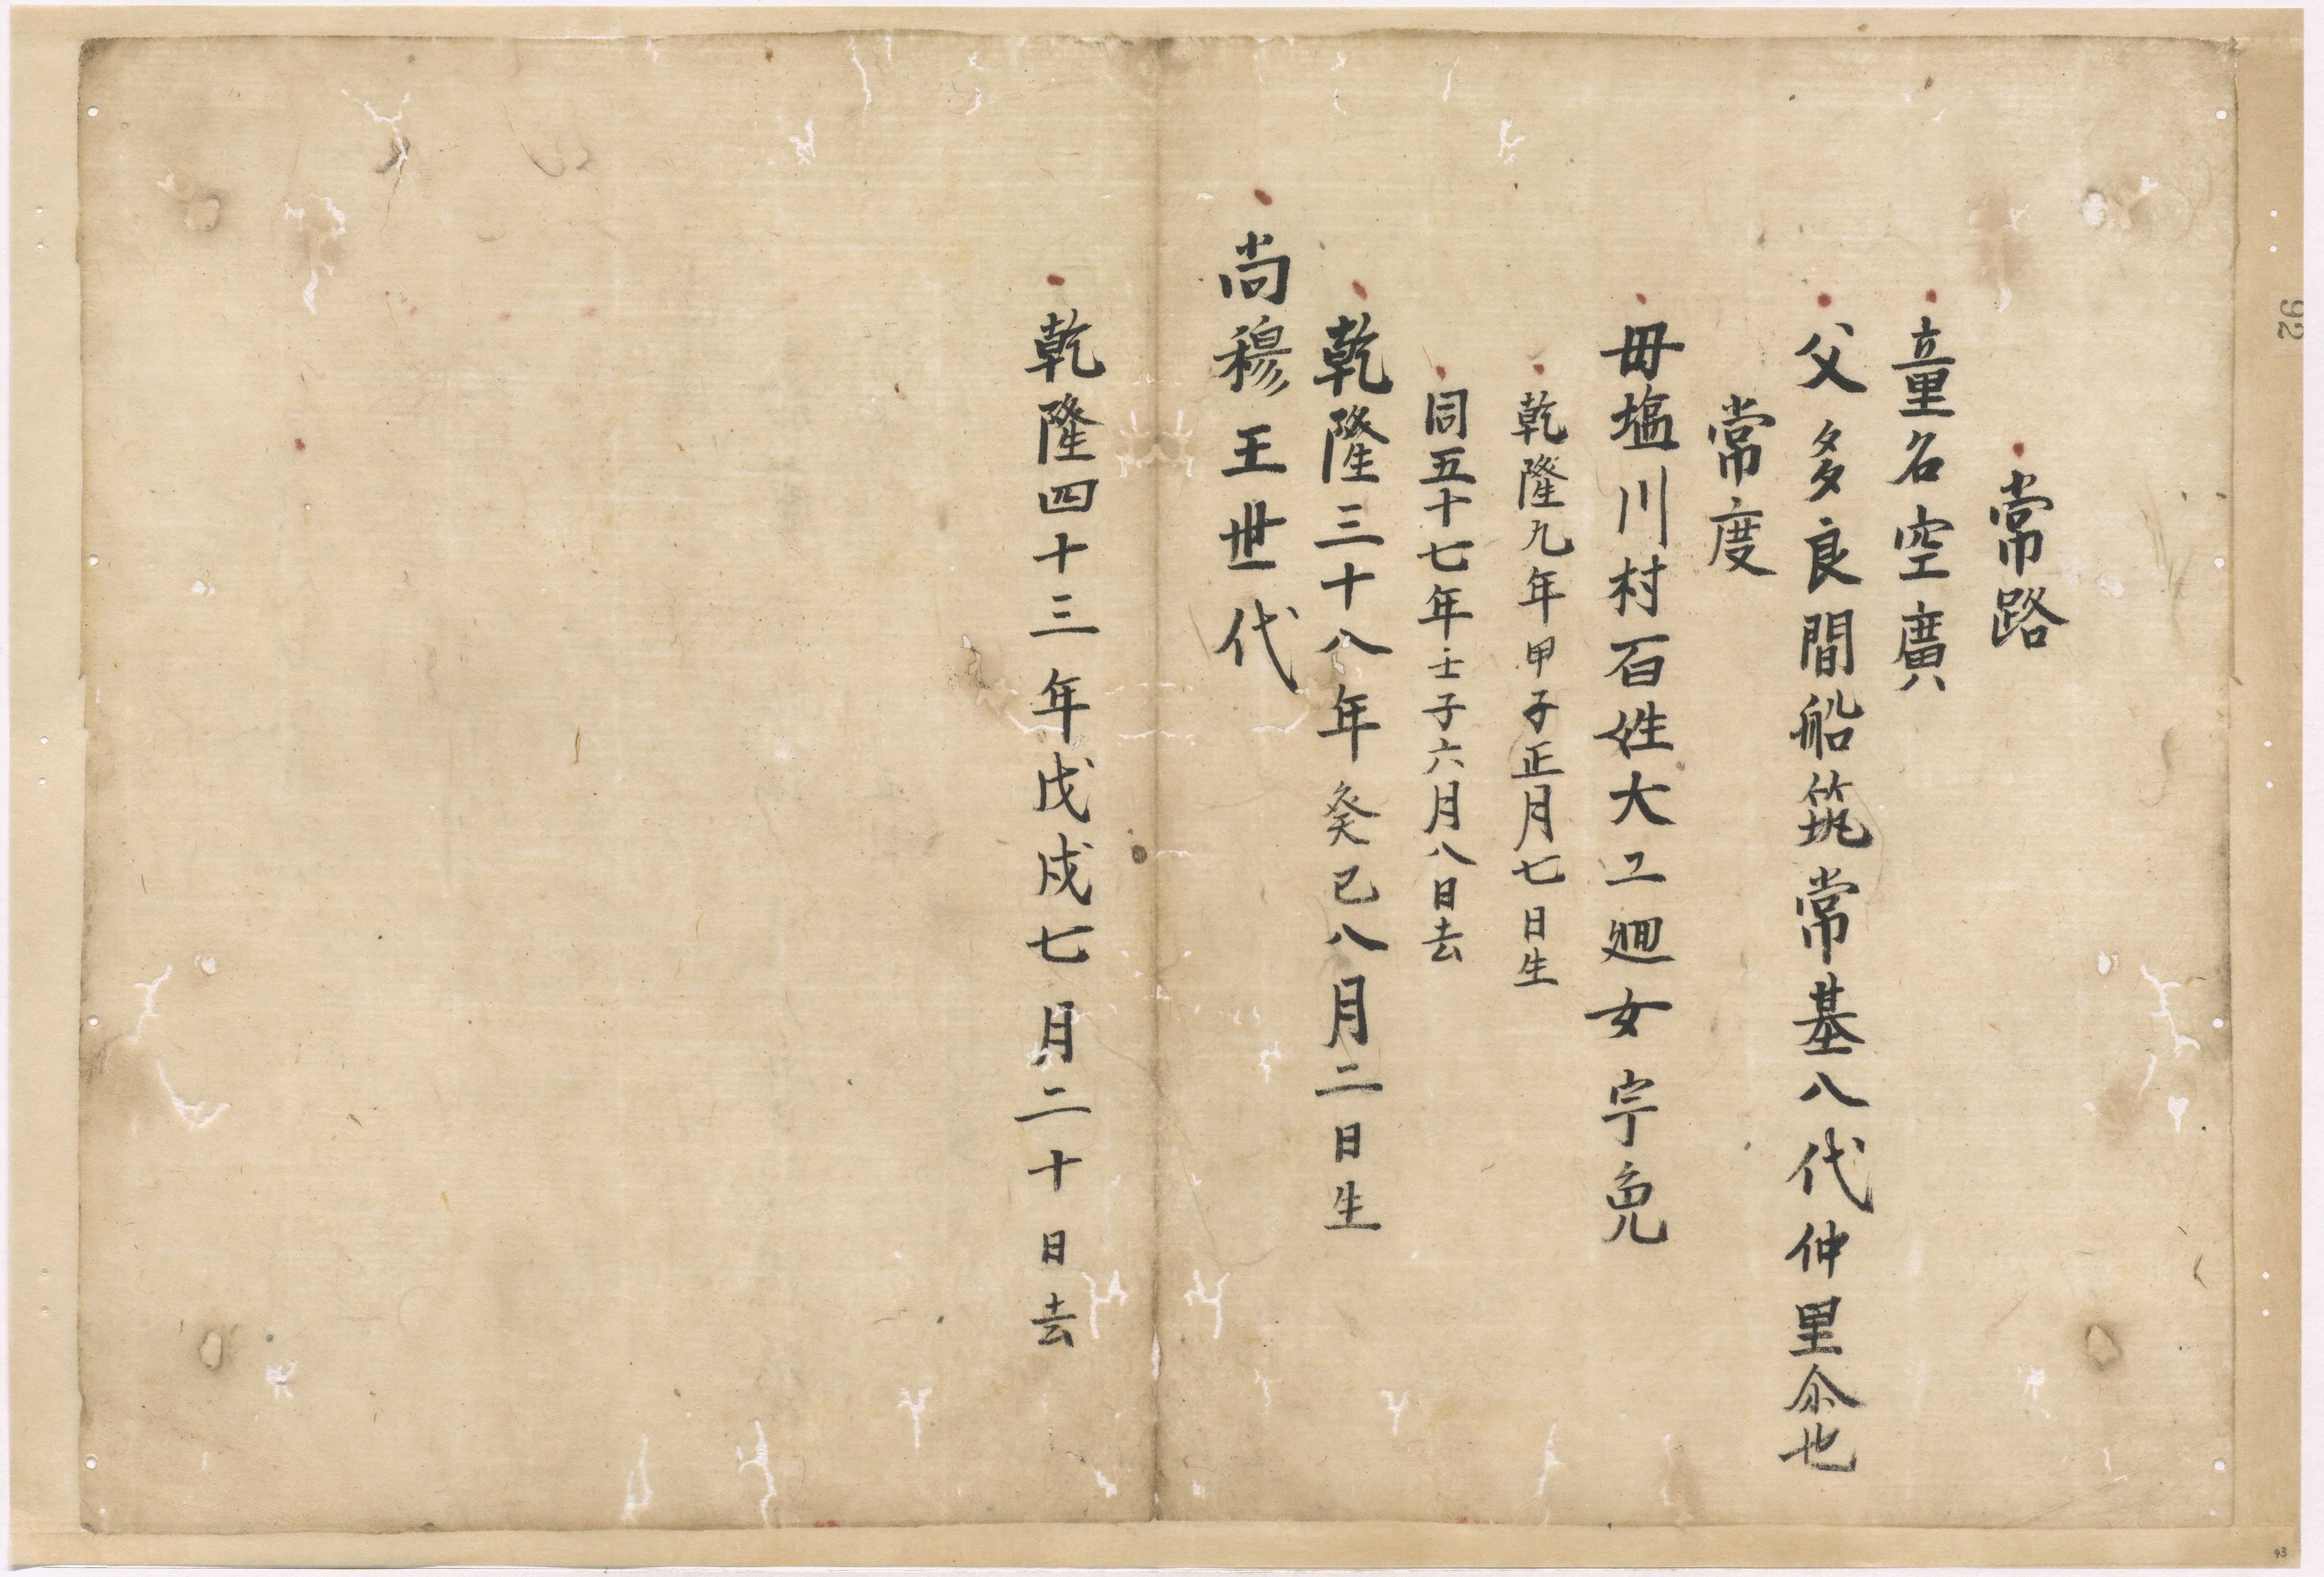 常路
童名空廣
父多良間船筑常基八代仲里尒也
常度
母塩川村百姓大工廻女宇免
乾隆九年甲子正月七日生
同五十七年壬子六月八日去
乾隆三十八年癸巳八月二日生
尚穆王世代
乾隆四十三年戊戌七月二十日去
92
93